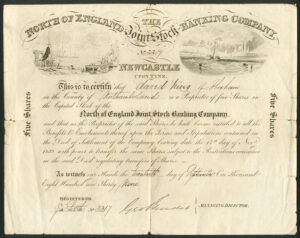 NORTH OF ENGLAND THE BANKING COMPANY,
Joint Stock
NEWCASTLE
UPON TYNE.
This is to certify that David King of Hexham
in the County of Northumberland is a Proprietor of five Shares in
the Capital Stock of the
North of England Joint Stock Banking Company.
and that as the Proprietor of the said Shares he is entitled to all the
Benefits & Emoluments thereof upon the Terms and Stipulations contained in
the Deed of Settlement of the Company bearing date the day of Nov.
with power to transfer the same Shares subject to the Restrictions contained
in the said Deed regulating transfers of Shares.
As witness our Hands the day of One Thousand
Eight Hundred and Thirty Nine
REGISTERED
MANAGING DIRECTOR.
Five Shares
Five Shares